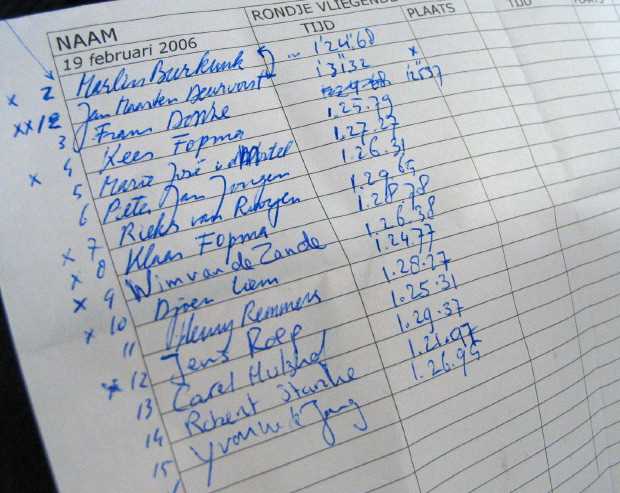 NAAM RONDJE VLIEGENDE
19 februari 2006 TIJD PLAATS TIJD
x 2 Marlin Burkunk 1'24"68
xx/2 Jan Maarten Deurvorst 1'31"32 x
3 Frans Donke 1'25"37
x 4 Kees Fopma 1.25.79
5 Marie José 1.27.27
6 Peter Jan Jongen 1.26.31
x 7 Rieks van Rooyen 1.29.65
x 8 Klaas Fopma 1.28.78
x 9 Wim van de Zande 1.26.38
x 10 Djoen Liem 1.24.77
11 Henny Remmers 1.28.27
x 12 Jens Roep 1.25.31
13 Carel Hulshof 1.29.37
14 Robert Starke 1.21.97
15 Yvonne de Jong 1.26.95